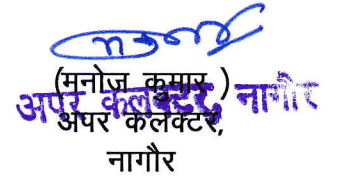 (मनोज कुमार )
अपर कलक्टर, नागौर
अपर कलक्टर,
नागौर